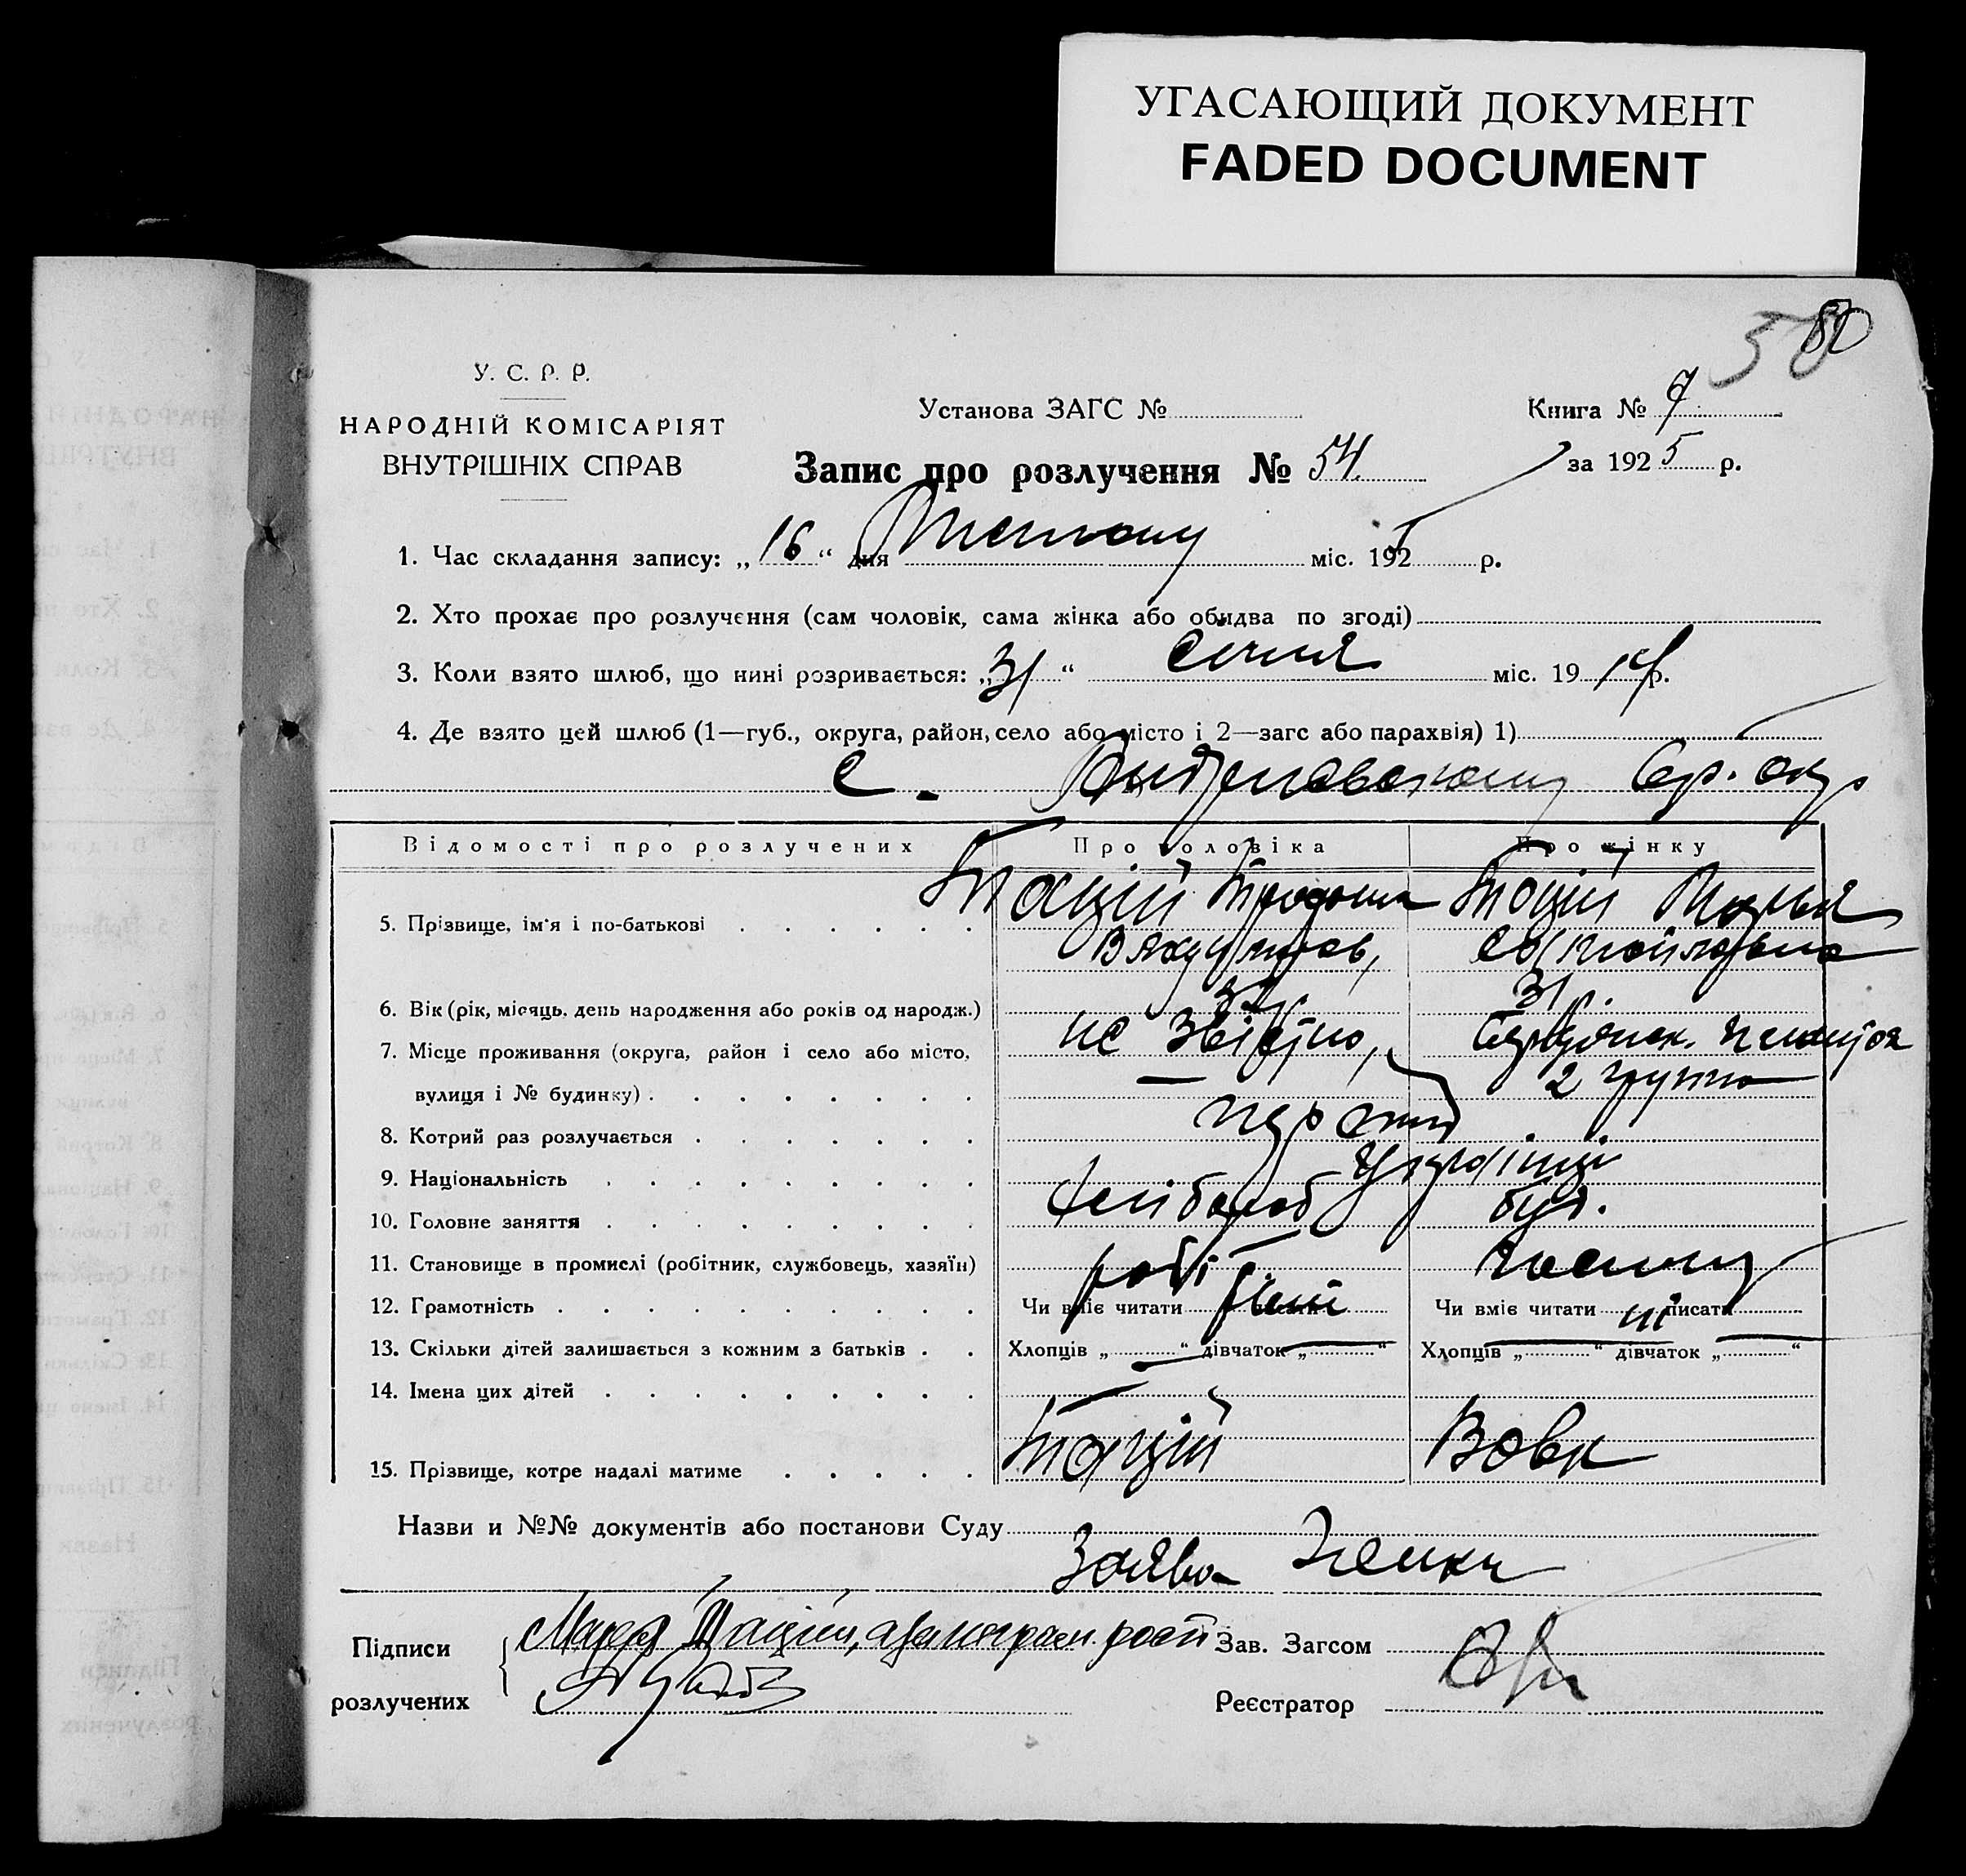 УГАСАЮЩИЙ ДОКУМЕНТ
FADED DOCUMENT
У. С. Р. Р.
НАРОДНІЙ КОМІСАРІЯТ
ВНУТРІШНІХ СПРАВ
Установа ЗАГС №
Книга №
Запис про розлучення № 54.
за 1925 р.
1. Час складання запису: „16“ дня Лютому міс. 192 р.
2. Хто прохає про розлучення (сам чоловік, сама жінка або обидва по згоді)
3. Коли взято шлюб, що нині розривається: „31“ Січня міс. 19 р.
4. Де взято цей шлюб (1—губ., округа, район, село або місто і 2—загс або парахвія) 1)
с.
Відомості про розлучених
Про чоловіка
Про жінку
5. Прізвище, ім'я і по-батькові
Тацій
Тацій Марья
6. Вік (рік, місяць, день народження або років од народж.)
31 р.
7. Місце проживання (округа, район і село або місто,
не звістно,
вулиця і № будинку)
2 группа
8. Котрий раз розлучається
перший
9. Національність
Українці
10. Головне заняття
хлібороб
11. Становище в промислі (робітник, службовець, хазяїн)
12. Грамотність
Чи вміє читати
Чи вміє читати ні писати
13. Скільки дітей залишається з кожним з батьків
Хлопців „ “ дівчаток „ “
Хлопців „ “ дівчаток „ “
14. Імена цих дітей
15. Прізвище, котре надалі матиме
Тацій
Вовк
Назви и №№ документів або постанови Суду
Заява Женки
Підписи
розлучених
Марья Тацій, а
Зав. Загсом
Реєстратор